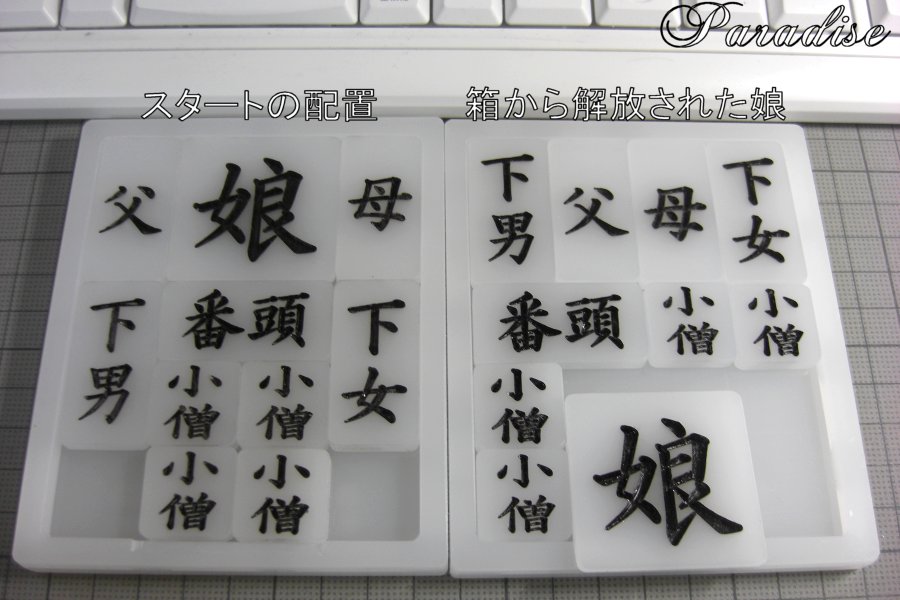 Paradise
スタートの配置
箱から解放された娘
父 娘 母
下男 番頭 下女
小僧 小僧
小僧 小僧
下男 父 母 下女
番頭 小僧 小僧
小僧
小僧
娘